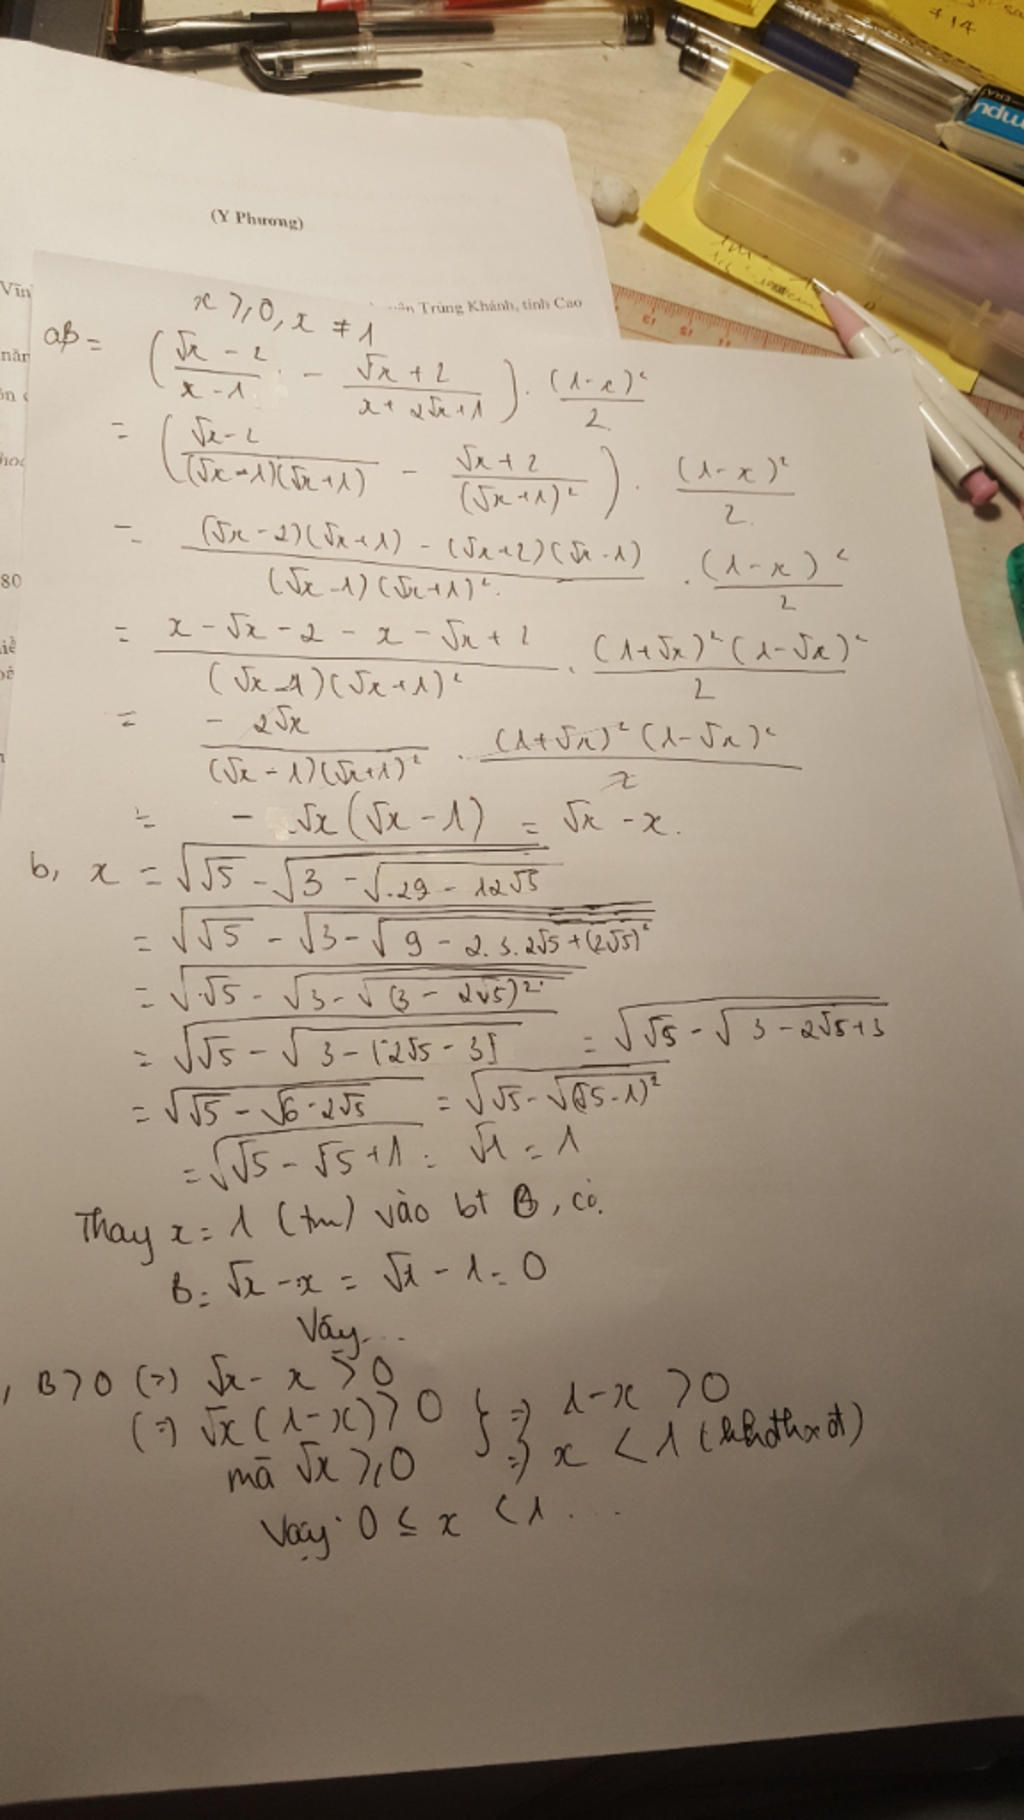 +14
(Y Phương)
Trùng Khánh, tỉnh Cao
x ⩾ 0, x ≠ 1
a, B = (√x - 2 / x - 1 - √x + 2 / x + 2√x + 1) . (1 - x)² / 2
= (√x - 2 / (√x - 1)(√x + 1) - √x + 2 / (√x + 1)²) . (1 - x)² / 2
= (√x - 2)(√x + 1) - (√x + 2)(√x - 1) / (√x - 1)(√x + 1)² . (1 - x)² / 2
= x - √x - 2 - x - √x + 2 / (√x - 1)(√x + 1)² . (1 + √x)²(1 - √x)² / 2
= - 2√x / (√x - 1)(√x + 1)² . (1 + √x)²(1 - √x)² / 2
= - √x(√x - 1) = √x - x.
b, x = √(√5 - √(3 - √(29 - 12√5)))
= √(√5 - √(3 - √(9 - 2.3.2√5 + (2√5)²)))
= √(√5 - √(3 - √((3 - 2√5)²)))
= √(√5 - √(3 - |2√5 - 3|)) = √(√5 - √(3 - 2√5 + 3))
= √(√5 - √(6 - 2√5)) = √(√5 - √((√5 - 1)²))
= √(√5 - √5 + 1) = √1 = 1
Thay x = 1 (tm) vào bt B, có.
B = √x - x = √1 - 1 = 0
Vậy...
, B > 0 (=) √x - x > 0
(=) √x(1 - x) > 0 } => 1 - x > 0
mà √x ⩾ 0 => x < 1 (khđthxđ)
Vậy 0 ≤ x < 1 ...